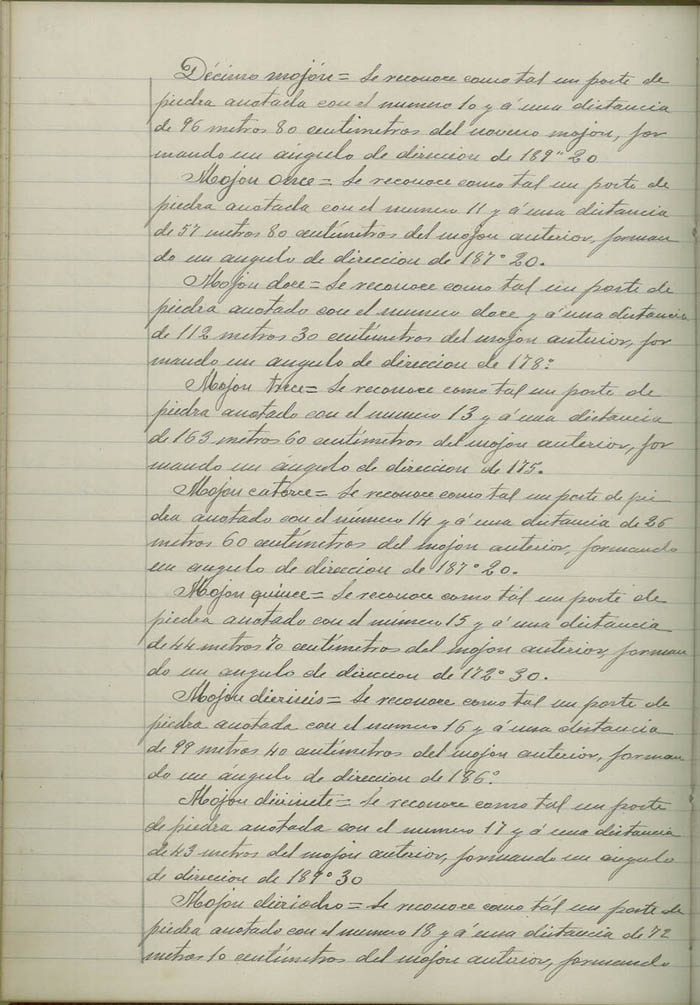 Décimo mojón = Se reconoce como tál un poste de
piedra anotada con el numero 10 y á una distancia
de 96 metros 80 centimetros del noveno mojon, for
mando un ángulo de direcion de 189° 20
Mojon once = Se reconoce como tal un poste de
piedra anotada con el numero 11 y á una distancia
de 57 metros 80 centímetros del mojon anterior, forman
do un angulo de direccion de 187° 20.
Mojón doce = Se reconoce como tal un poste de
piedra anotado con el numero doce y á una distancia
de 112 metros 30 centímetros del mojon anterior, for
mando un angulo de direccion de 178°
Mojon trece = Se reconoce como tal un poste de
piedra anotado con el numero 13 y á una distancia
de 163 metros 60 centímetros del mojon anterior, for
mando un ángulo de direccion de 175.
Mojon catorce = Se reconoce como tál un poste de pie
dra anotado con el número 14 y á una distancia de 26
metros 60 centímetros del mojon anterior, formando
un angulo de direccion de 187° 20.
Mojon quince = Se reconoce como tál un poste de
piedra anotado con el número 15 y á una distancia
de 44 metros 70 centímetros del mojon anterior, forman
do un angulo de direccion de 172° 30.
Mojon dieciseis = Se reconoce como tal un poste de
piedra anotada con el numero 16 y á una distancia
de 99 metros 40 centímetros del mojon anterior, forman
do un ángulo de direccion de 186°
Mojon diecisiete = Se reconoce como tal un poste
de piedra anotada con el numero 17 y á una distancia
de 43 metros del mojon anterior, formando un ángulo
de direccion de 189° 30
Mojon dieciocho = Se reconoce como tál un poste de
piedra anotado con el numero 18 y á una distancia de 72
metros 10 centímetros del mojon anterior, formando